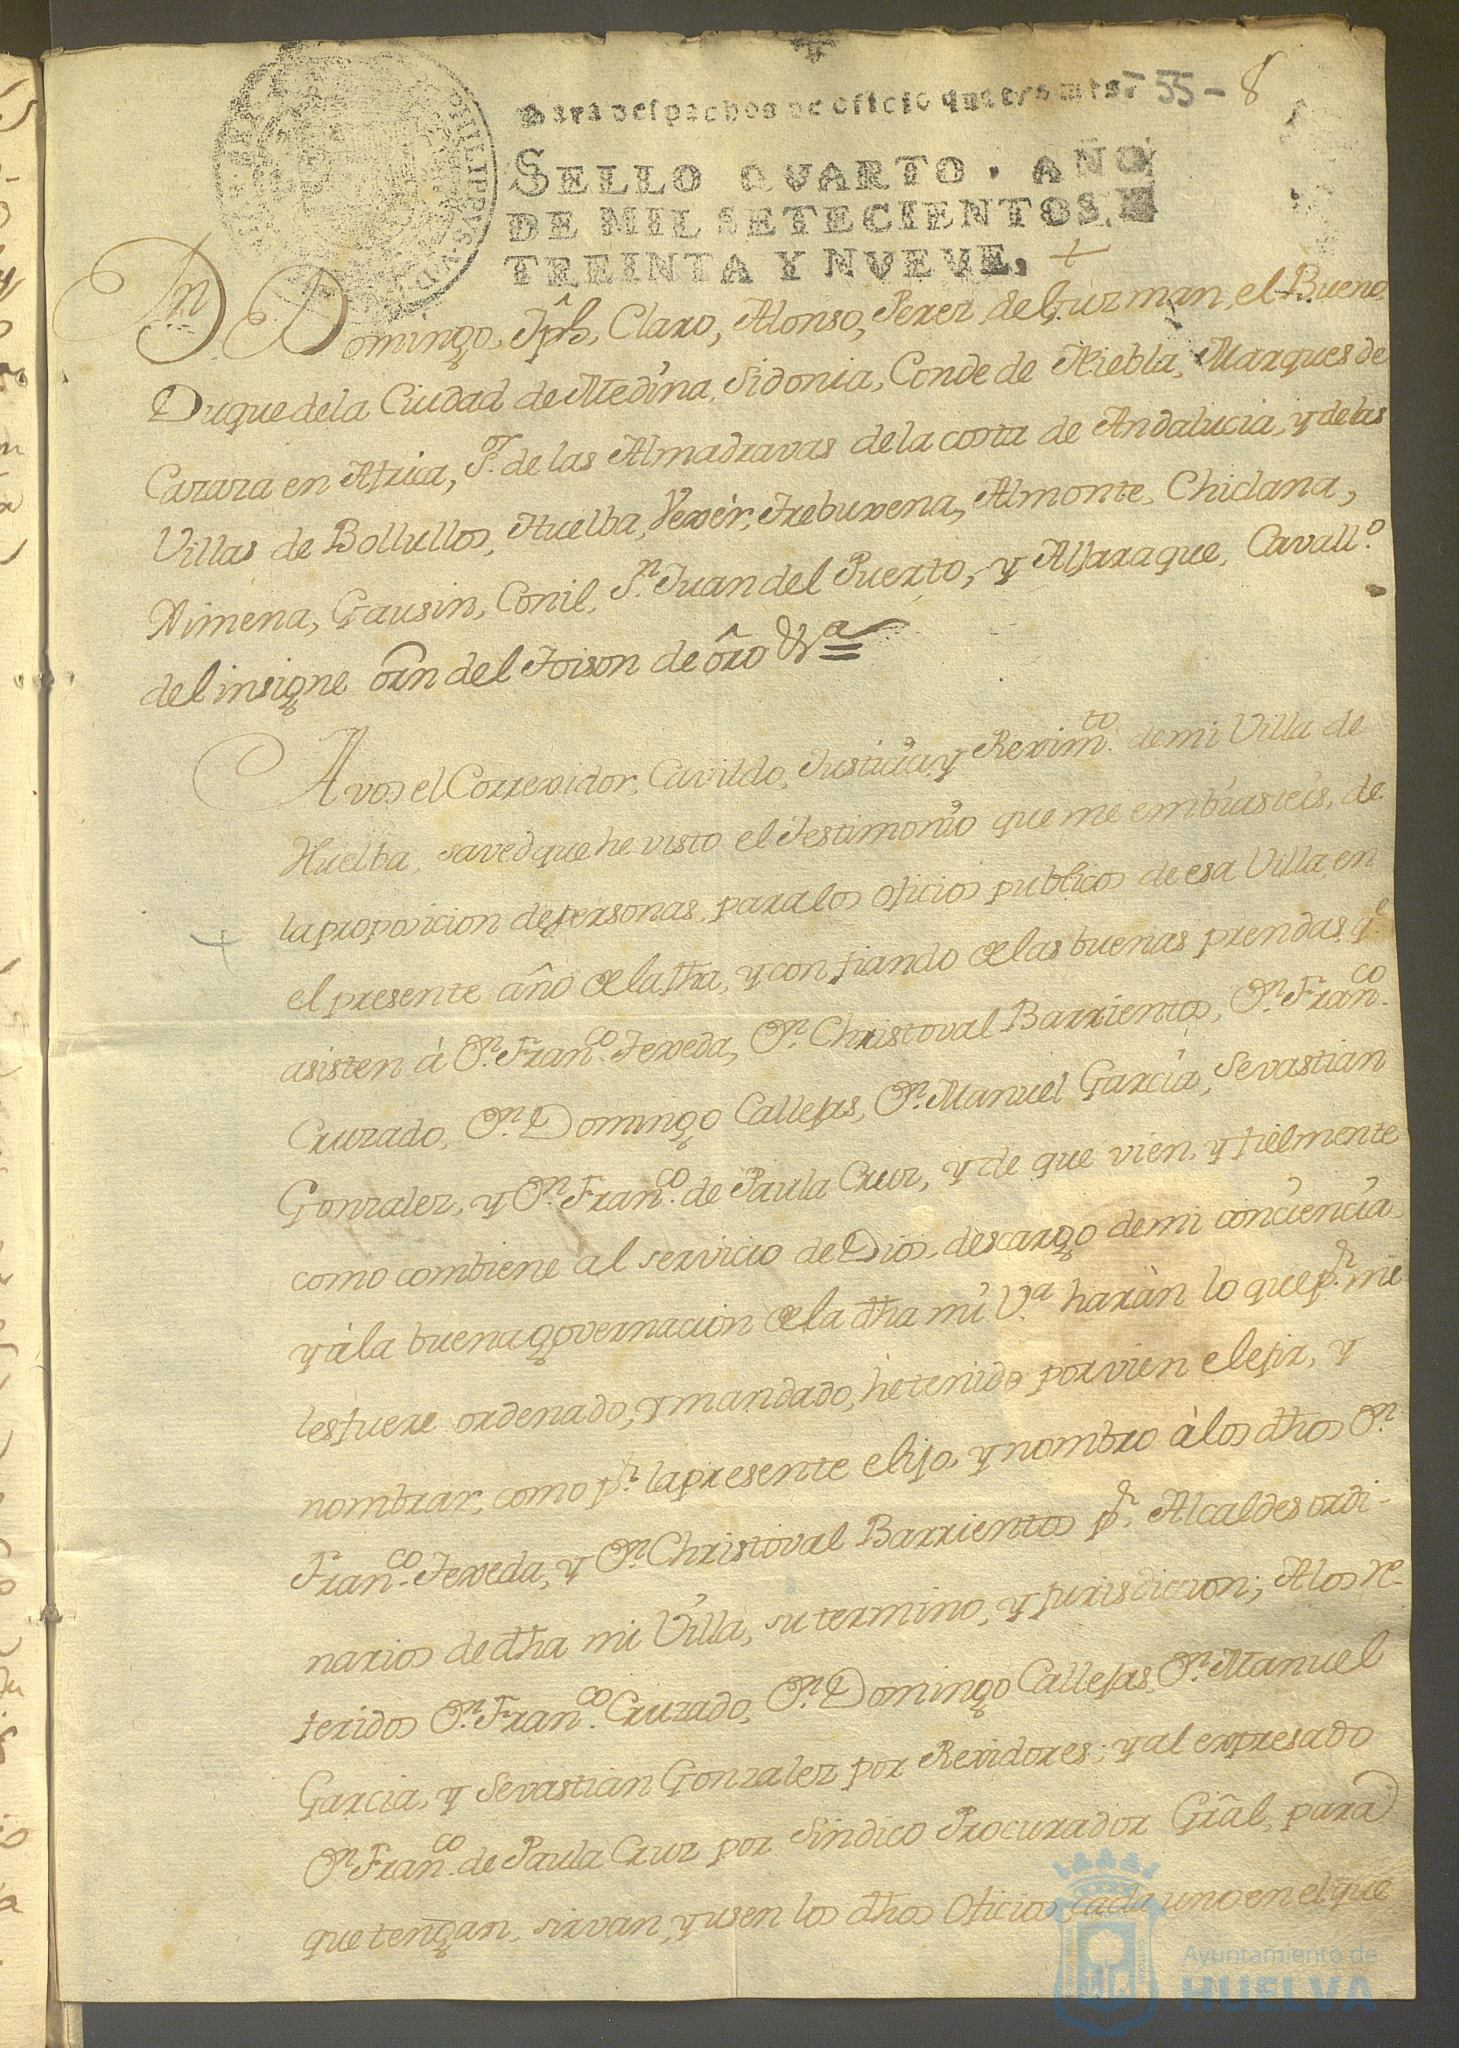 Para despachos de oficio quatro mrs. 55 - 8
SELLO QVARTO. AÑO
DE MIL SETECIENTOS Y
TREINTA Y NVEVE.
Dn Domingo, Jph, Claro, Alonso, Perez de Guzman, el Bueno
Duque dela Ciudad de Medina Sidonia, Conde de Niebla, Marques de
Cazaza en Africa, Sor. de las Almadravas dela costa de Andalucia, y delas
Villas de Bollullos, Huelba, Vexèr, Trebuxena, Almonte, Chiclana,
Ximena, Gausin, Conil, Sn. Juan del Puerto, y Alfaraque, Cavallo.
del insigne orn del Toison de ôro &a
A vos el Correxidor, Cavildo, Justicia, y Reximto. de mi Villa de
Huelba, saved que he visto el Testimonio que me embiasteis, de
la proposicion de personas, para los oficios publicos de esa Villa, en
el presente año de la fha, y confiando de las buenas prendas, qe
asisten à Dn. Franco. Texeda, Dn. Christoval Barrientos, Dn. Franco.
Cruzado, Dn. Domingo Callejas, Dn. Manuel Garcia, Sevastian
Gonzalez, y Dn. Franco. de Paula Cruz, y de que vien, y fielmente
como combiene al servicio de Dios, descargo de mi conciencia
y à la buena governacion de la dha mi Va. haràn lo que pr. mi
les fuere ordenado, y mandado, he tenido por vien elejir, y
nombrar, como pr. la presente elijo, y nombro à los dhos Dn.
Franco. Texeda, y Dn. Christoval Barrientos pr. Alcaldes ordi-
narios de dha mi Villa, su termino, y Jurisdiccion; A los re-
feridos Dn. Franco. Cruzado, Dn. Domingo Callejas, Dn. Manuel
Garcia, y Sevastian Gonzalez por Rexidores; y al expresado
Dn. Franco. de Paula Cruz por Sindico Procurador Gral, para
que tengan, sirvan, y usen los dhos Oficios cada uno en el que
Ayuntamiento de
HUELVA